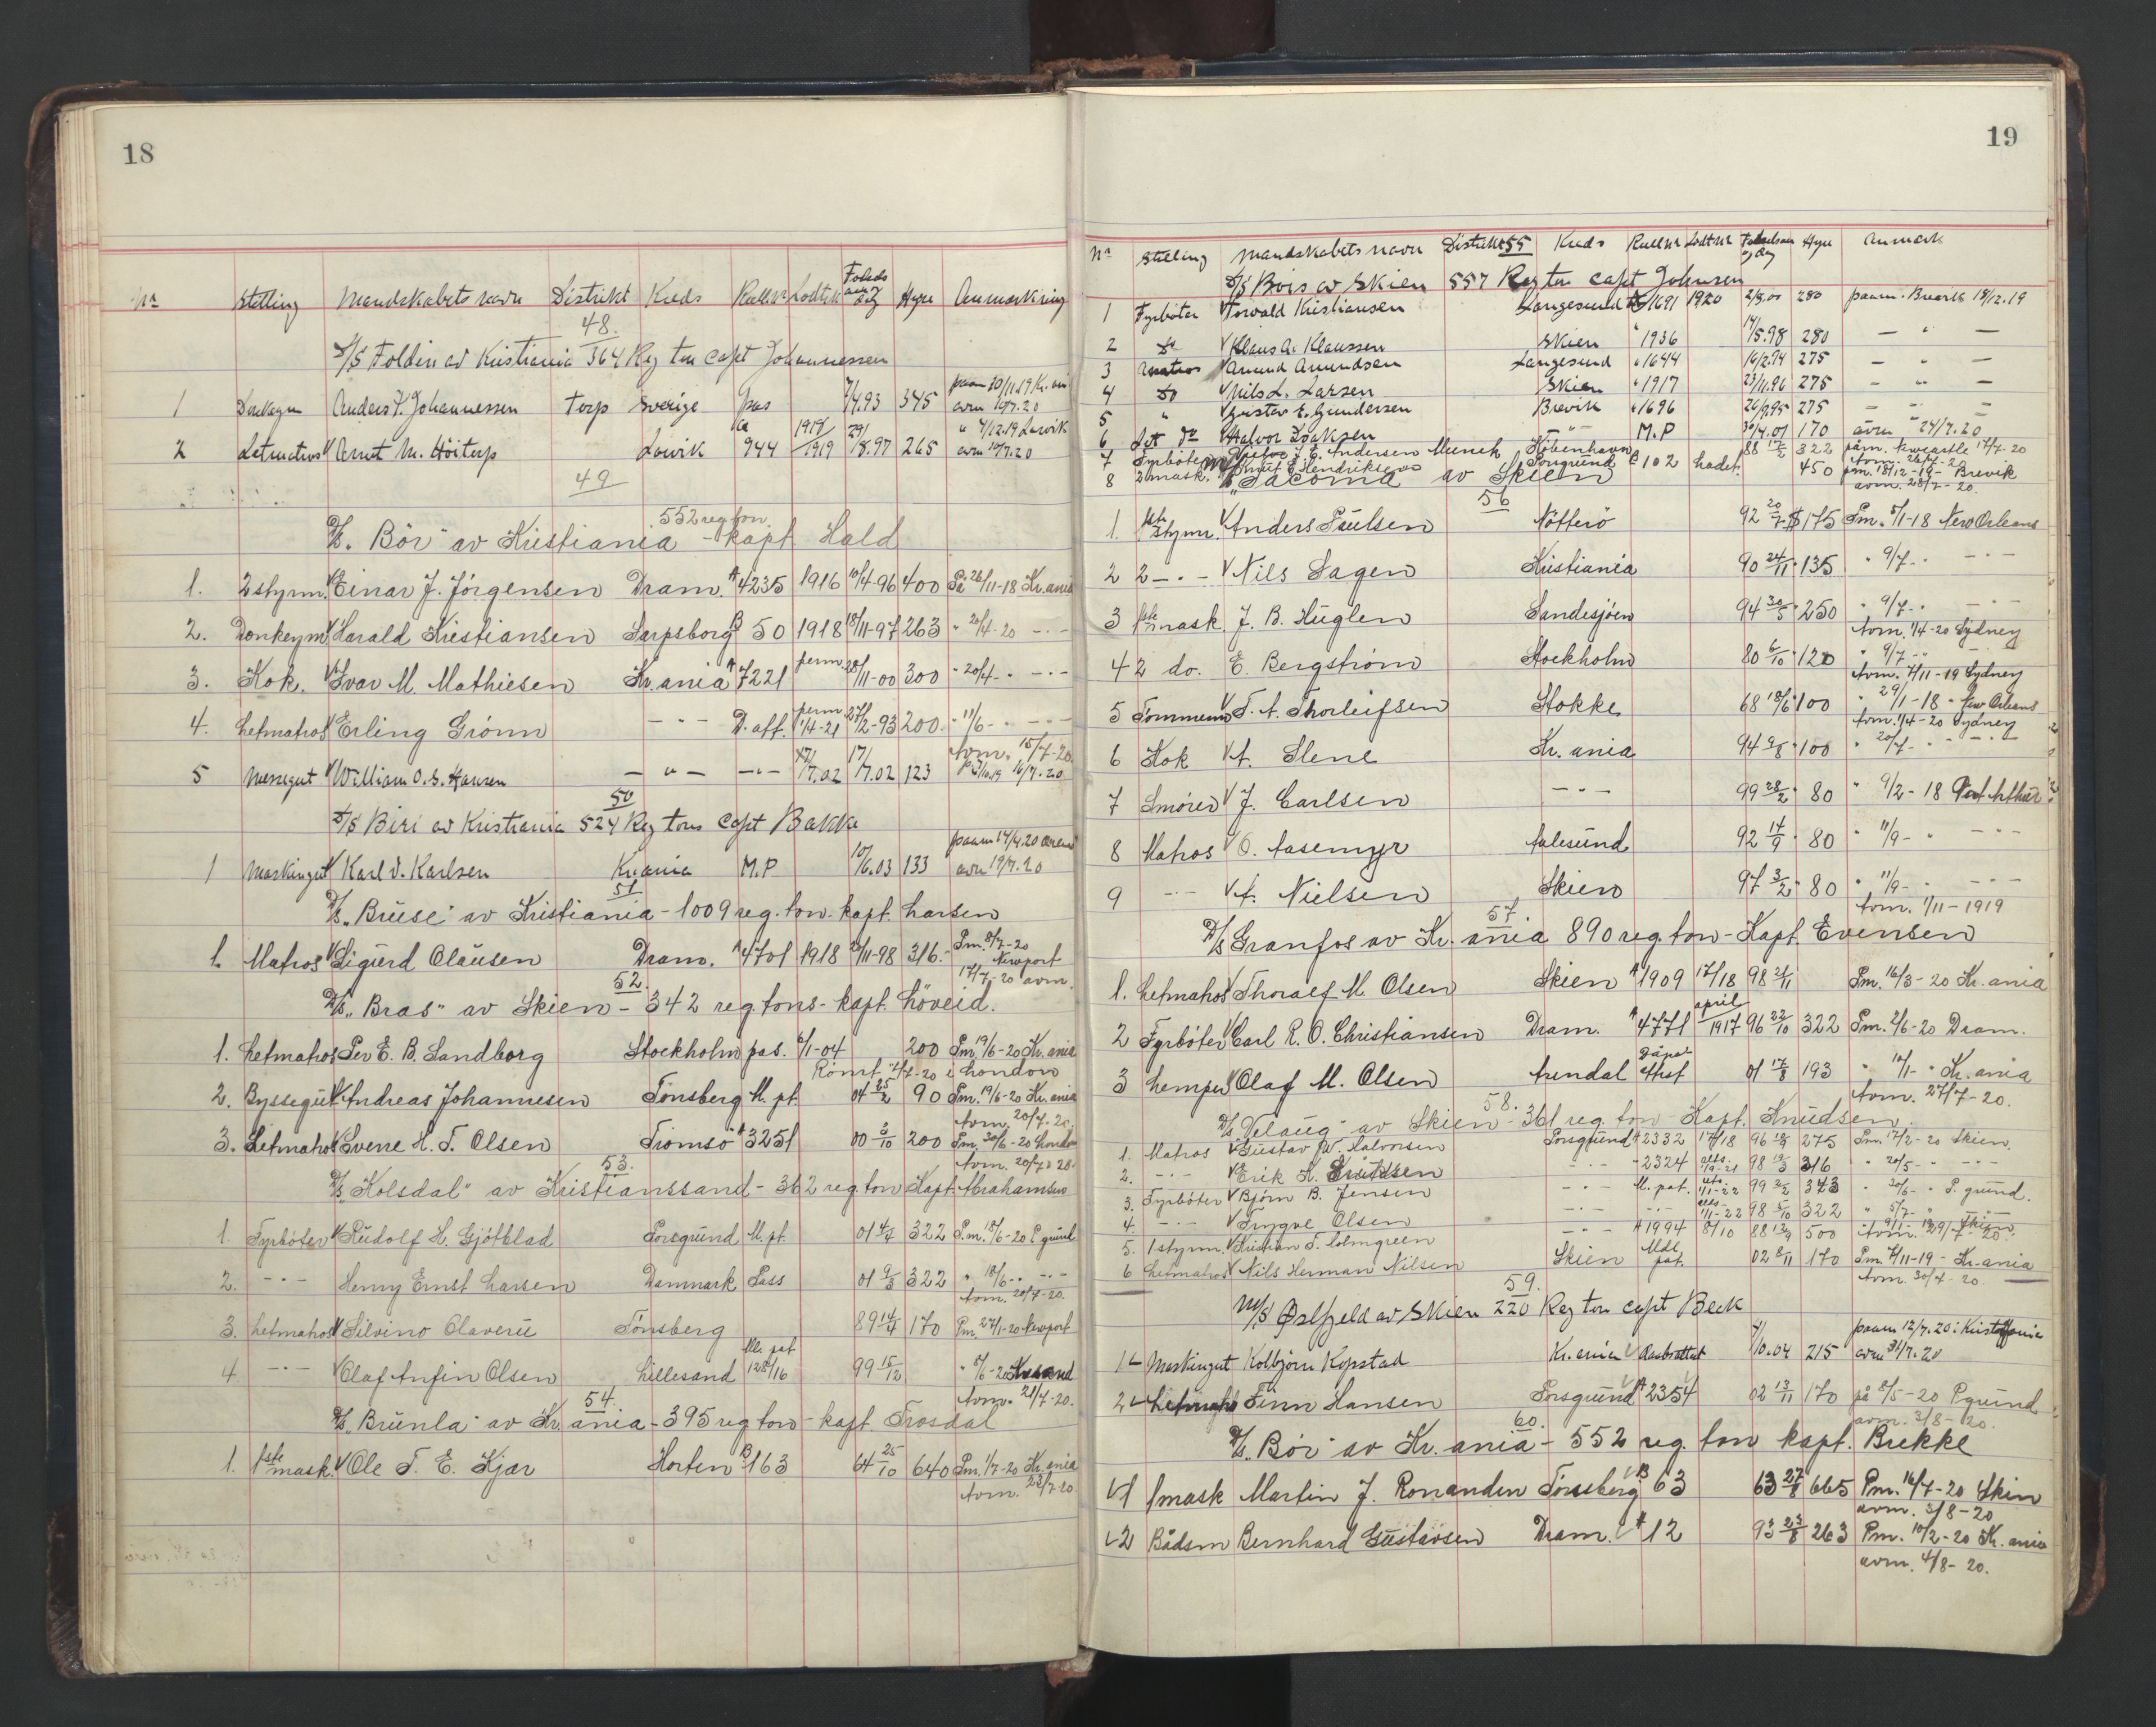 18
Nr Stilling Mandskabets navn Distrikt Kreds RulleNr Lodtr. Føds aar og dag Hyre Anmærkning
48.
S/S Foldin av Kristiania 364 Reg ton Capt Johannessen
1 Donkeym Anders F. Johannessen Torp Sverige pas 7/4.93 345 paam 20/11.19 Kr.ania
avm 16/7.20
2 Letmatros Arnt M. Høitorp Larvik a 944 1918/1919 29/8.97 265 " 4/12.19 Larvik
avm 10/7.20
49
552 reg ton
D/S. "Bör" av Kristiania - kapt. Hald
1. 2 styrm. Einar J. Jörgensen Dram. A 4235 1916 10/4-96 400 På 26/11-18 Kr.ania
2. Donkeym Harald Kristiansen Sarpsborg B 50 1918 18/11-97 263 " 20/4-20 -"-
3. Kok. Ivar M. Mathiesen Kr.ania A 7221 perm 28/11-00 300 " 20/4-" -"-
4. Letmatros Erling Grönn -"- D. aff. perm 1/4-21 27/2-93 200. " 11/6-" -"-
Avm. 15/7-20.
5 Messegut William O. S. Hansen -"- -"- 17/7.02 17/7.02 123 16/7.20
50
S/S Biri av Kristiania 524 Reg tons Capt Bakke
1 Maskingut Karl V. Karlsen Kr.ania M.P 10/6.03 133 paam 14/4.20
avm 19/7.20
51
D/S. "Bruse" av Kristiania - 1009 reg. ton. kapt. Larsen
1. Matros Sigurd Clausen Dram. A 4701 1918 28/11-98 316.- Pm. 8/7-20
Newport
17/7-20 avm.
52.
D/S. "Bras" av Skien - 342 reg. tons - kapt. Höveid.
1. Letmatros Per E. B. Sandborg Stockholm pas. 6/1-04 200 Pm. 19/6-20 Kr.ania
Römt 4/7-20 i London
2. Byssegut Andreas Johannesen Tönsberg M. pt. 04 25/2 90 Pm. 19/6-20 Kr.ania
Avm. 20/7-20.
3. Letmatros Sverre H. T. Olsen Tromsö A 3251 00 3/10 200 Pm. 30/6-20 London
Avm. 20/7-20.
53.
D/S. "Kolsdal" av Kristianssand - 362 reg. ton Kapt. Abrahamsen
1. Fyrböter Rudolf H. Gjötblad Porsgrund M. pt. 01 4/4 322 P.m. 18/6-20 P.grund
2. -"- Henry Ernst Larsen Danmark Pass 01 9/3 322 " 18/6-" -"-
Avm. 20/7-20.
3. Letmatros Silvino Claveru Tönsberg 89 14/4 170 Pm. 27/1-20 Newport
4. -"- Olaf Anfin Olsen Lillesand Ml. pat 128/16 99 15/12 " 8/6-20 Kr.sand
Avm. 21/7-20.
54.
D/S. "Brunla" av Kr.ania - 395 reg ton - kapt. Trosdal
1. 1ste mask. Ole T. E. Kjær Horten B 163 64 25/10 640 Pm. 1/7-20 Kr.ania
Avm. 23/7-20.
19
Nr Stilling Mandskabets navn Distrikt 55 Kreds RulleNr LodtNr Fødselsaar og dag Hyre Anmærk
S/S Bris av Skien 557 Reg ton Capt Johnsen
1 Fyrböter Torvald Kristiansen Langesund A 1691 1920 2/8.00 280 paam. Brevik 18/12.19
2 do Klaus A. Klaussen Skien " 1936 14/5.98 280 - " -
3 Matros Amund Amundsen Langesund " 1644 16/2.94 275 - " -
4 do Nils L. Larsen Skien " 1917 23/11.96 275 - " -
5 " Gustav E. Gundersen Brevik " 1696 26/9.95 275 - " -
6 Let do Halvor Isaksen " M.P 30/4.01 170 avm " 24/7.20
7 Fyrböter J. E. Andersen Munch Köbenhavn 88 17/2 322 påm. Newcastle 17/7-20
Avm. 26/7-20
8 2 mask. Knut E. Hendriksen Porsgrund C 102 Lodet. 450 pm. 18/12-19 - Brevik
avm. 28/7-20.
D/S "Tacoma" av Skien
56
1. 1ste styrm. Anders Poulsen Nötterö 92 20/7 $175 Pm. 8/1-18 New Orleans
2 2 -"- Nils Sagen Kristiania 90 24/11 " 135 " 9/7-" -"-
3 1ste mask. J. B. Huglen Sandesjöen 94 30/5 " 250 " 9/7-" -"-
Avm. 1/4-20 Sydney
4 2 do. E. Bergström Stockholm 80 6/10 " 120 " 9/7-" -"-
Avm. 7/11-19 Sydney
5 Tömmerm T. A. Thorleifsen Stokke 68 18/6 " 100 " 29/1-18 " New Orleans
Avm. 1/4-20 Sydney
6 Kok A. Slene Kr.ania 94 9/8 " 100 " 20/7-" -"-
7 Smörer J. Carlsen -"- 99 28/2 " 80 " 9/2-18 Port Arthur
8 Matros O. Aasemyr Aalesund 92 14/9 " 80 " 11/9-" -"-
9 -"- A. Nielsen Skien 97 3/2 " 80 " 11/9-" -"-
Avm. 1/11-1919
57.
D/S Granfos av Kr.ania 890 reg. ton - Kapt. Evensen
1. Letmatros Thoralf M. Olsen Skien A 1909 17/18 98 21/11 Pm. 16/3-20 Kr.ania
2 Fyrböter Carl R. O. Christiansen Dram. A 4771 april 1917 96 22/10 322 Pm. 2/6-20 Dram.
3 Lemper Olaf M. Olsen Arendal 01 17/8 193 " 10/1-" Kr.ania
Avm. 27/7-20.
58.
D/S. "Velaug" av Skien - 361 reg. ton - Kapt. Knudsen.
1. Matros Gustav W. Halvorsen Porsgrund A 2332 17/18 96 18/9 275 Pm. 17/2-20 Skien.
2. -"- Erik K. Knudsen -"- - 2324 uts. 1/9-21 98 19/3 316 " 20/5-" -"-
3. Fyrböter Björn B. Jensen -"- M. pat. uts. 1/1-22 99 2/2 343 " 30/6-" P.grund.
4. -"- Trygve Olsen -"- -"- uts. 1/1-22 98 5/10 322 " 5/7-" Skien
5. 1 styrm. Kristian T. Holmgreen -"- A 1994 8/10 88 13/9 500 " 9/11-19 -"-
Avm. 29/7-20.
6 Letmatros Nils Herman Nilsen Skien Mdl. pat. 02 8/11 170 Pm. 7/11-19 - Kr.ania
Avm. 30/7-20.
59.
M/S Østfjeld av Skien 220 Reg ton capt Beck
1 Maskingut Kolbjørn Kopstad Kr.ania 4/10.04 215 paam 12/7.20 i Kristiania
avm 31/7.20
2 Letmatros Finn Hansen Porsgrund A 2354 02 13/11 170 på 8/5-20 P.grund
avm. 3/8-20.
60.
D/S. "Bör" av Kr.ania - 552 reg. ton kapt. Brekke
1 1 mask Martin J. Ronanden Tönsberg B 63 63 27/8 665 Pm. 16/7-20 Skien
avm. 3/8-20
2 Bådsm Bernhard Gustavsen Dram. A 12 93 23/8 263 Pm. 10/2-20 Kr.ania
avm. 4/8-20.